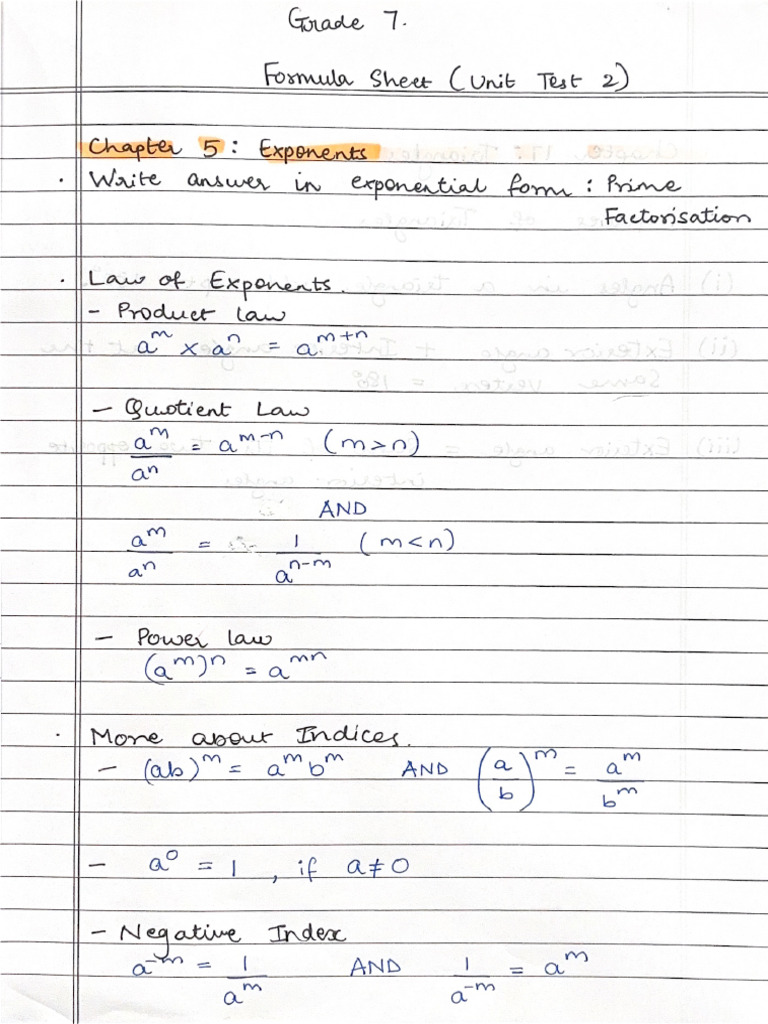 Grade 7.
Formula Sheet (Unit Test 2)
Chapter 5: Exponents
· Write answer in exponential form : Prime
Factorisation
· Law of Exponents.
- Product law
a^m × a^n = a^(m+n)
- Quotient Law
a^m/a^n = a^(m-n) (m>n)
AND
a^m/a^n = 1/a^(n-m) (m<n)
- Power law
(a^m)^n = a^(mn)
· More about Indices.
- (ab)^m = a^m b^m AND (a/b)^m = a^m/b^m
- a^0 = 1, if a≠0
- Negative Index
a^(-m) = 1/a^m AND 1/a^(-m) = a^m